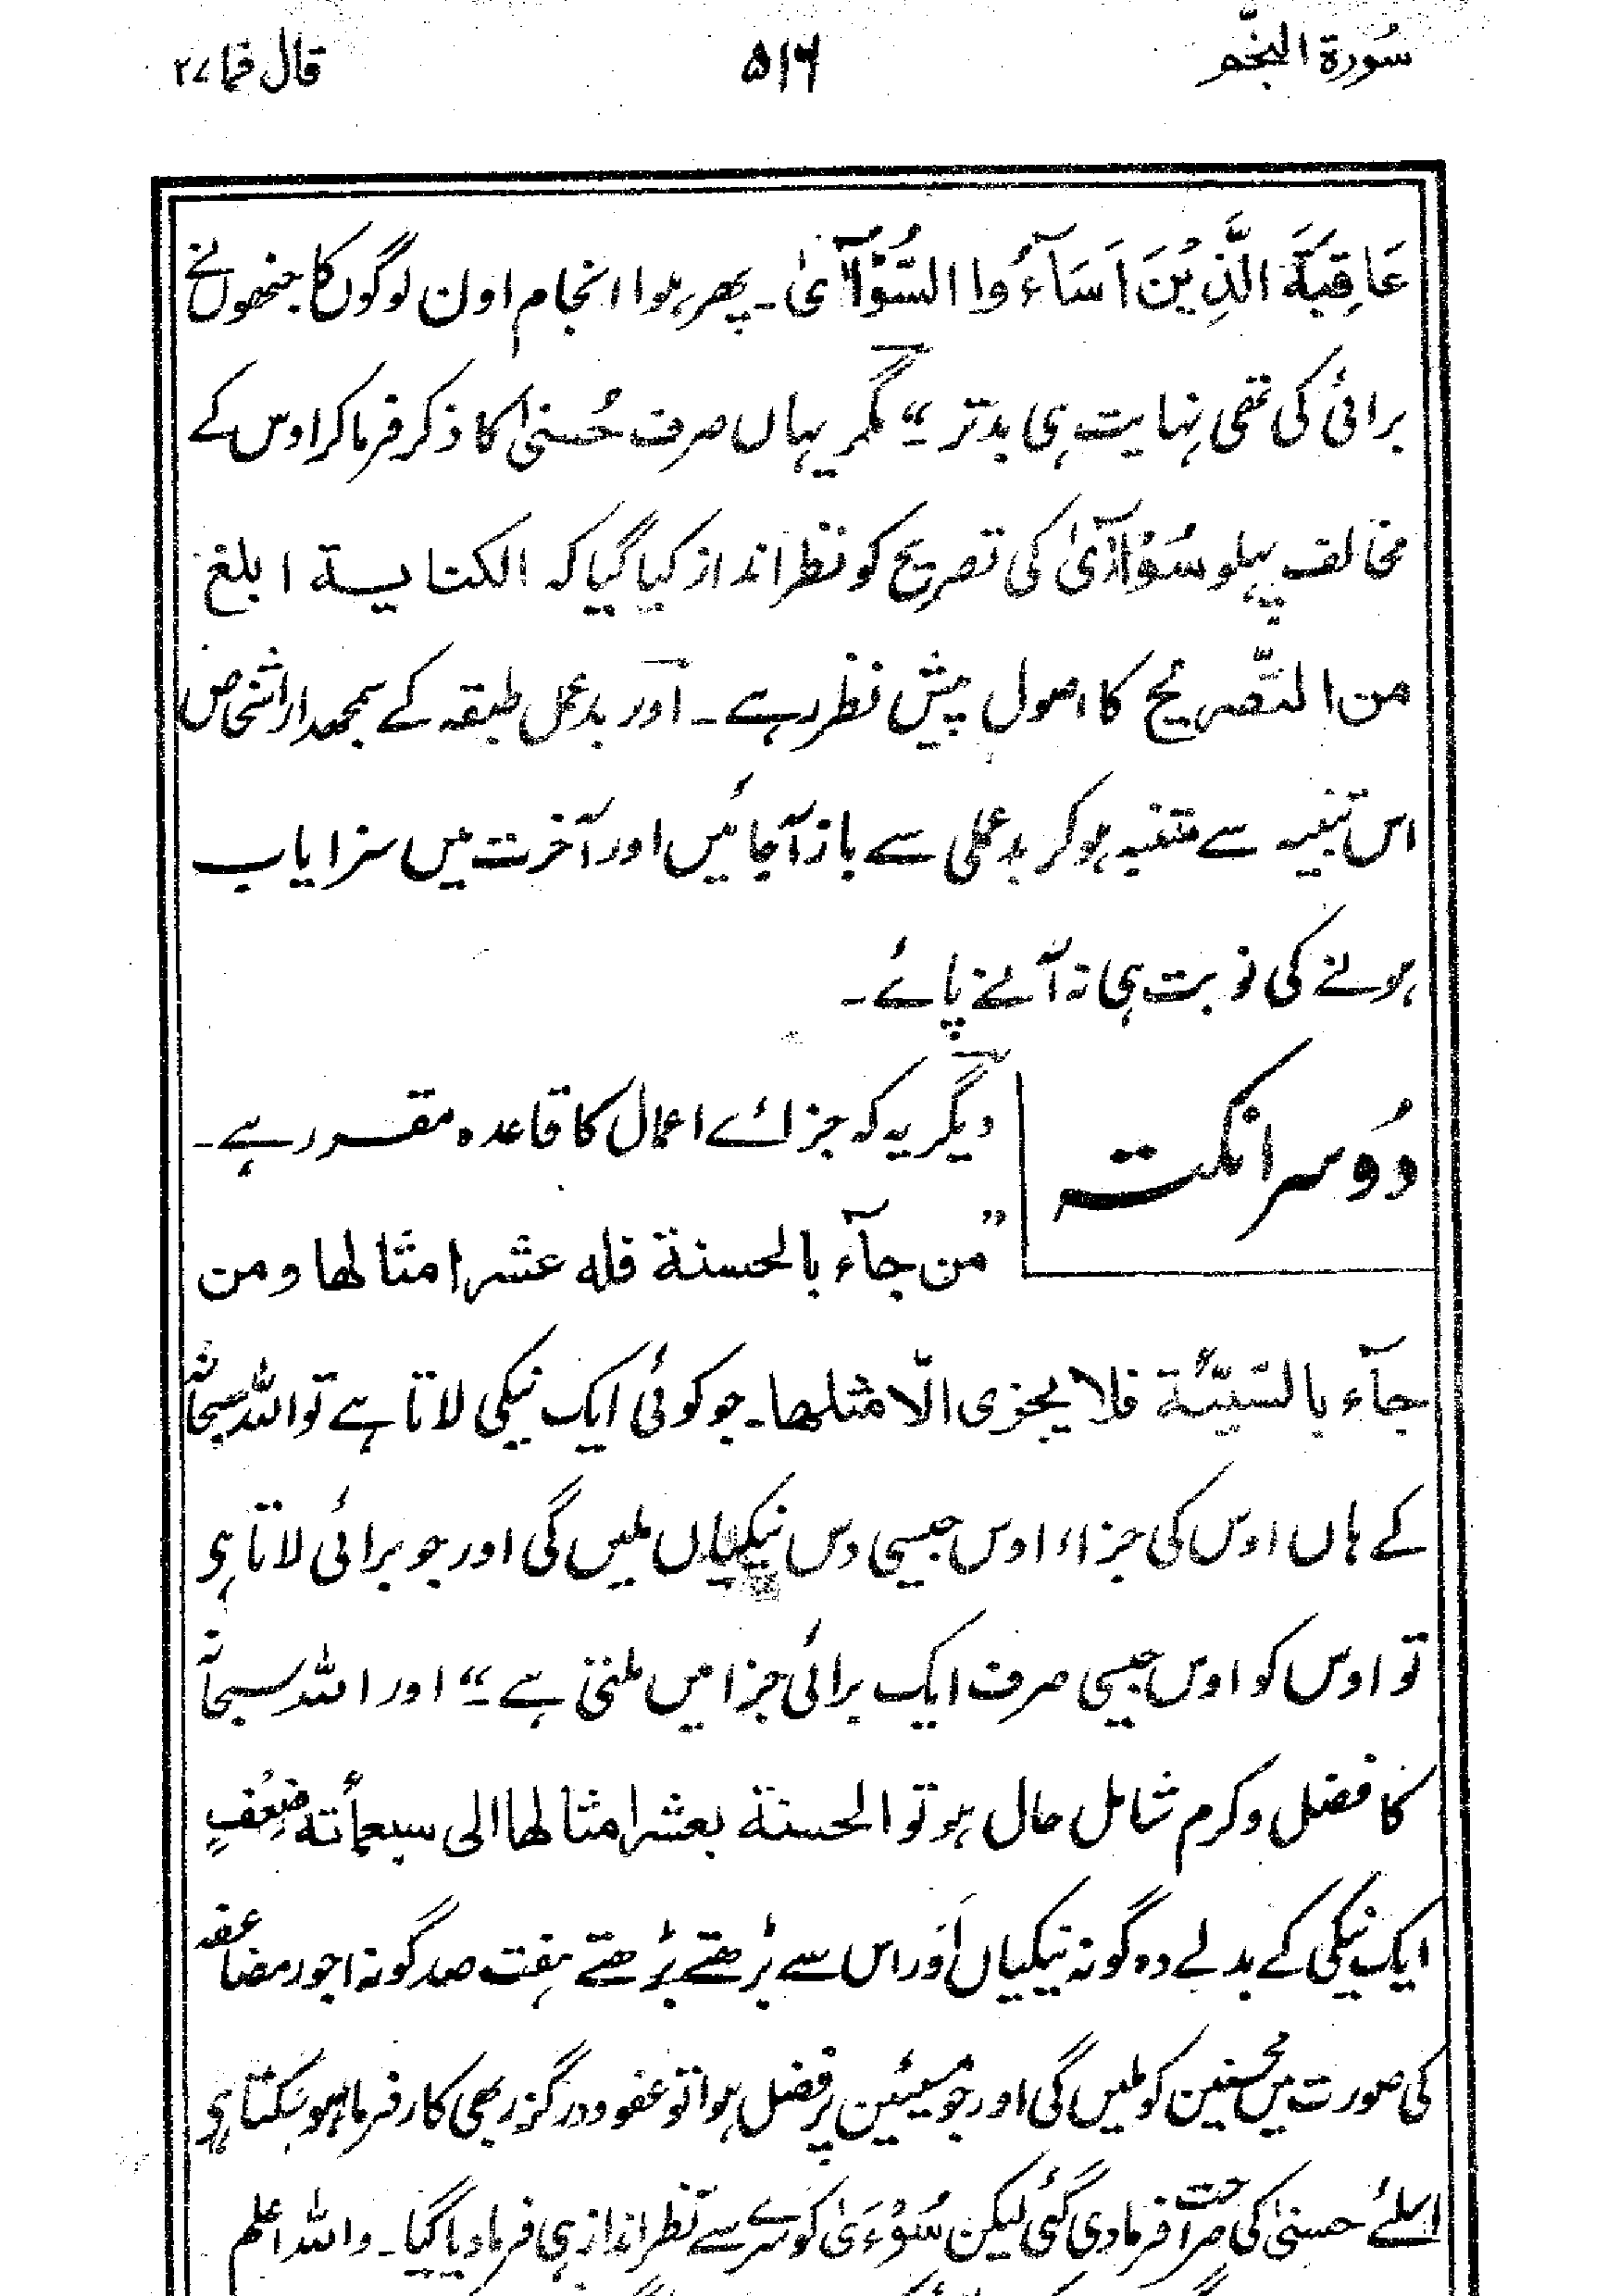 سُورة النجّم ۵۱۶ قال فما ۲۷
عَاقِبَةَ الَّذِيْنَ اَسَآءُوا السُّوْٓاٰى۔ پھر ہوا انجام اون لوگوں کا جنھوں نے
برائی کی تھی نہایت ہی بدتر۔“ مگر یہاں صرف حُسنیٰ کا ذکر فرما کر اوس کے
مخالف پہلو سُوْآٰى کی تصریح کو نظر انداز کیا گیا کہ الکنایۃ ابلغ
من التّصریح کا اصول پیش نظر رہے۔ اور بدعمل طبقہ کے سمجھدار اشخاص
اس تنبیہ سے متنبہ ہو کر بدعملی سے باز آجائیں اور آخرت میں سزا یاب
ہونے کی نوبت ہی نہ آنے پائے۔
دُوسرا نکتہ
دیگر یہ کہ جزائے اعمال کا قاعدہ مقرر ہے۔
”من جآء بالحسنة فله عشر امثالها ومن
جآء بالسّیّئة فلا یجزی الّا مثلها۔ جو کوئی ایک نیکی لاتا ہے تو اللہ سبحانہٗ
کے ہاں اوس کی جزاء اوس جیسی دس نیکیاں ملیں گی اور جو برائی لاتا ہی
تو اوس کو اوس جیسی صرف ایک برائی جزا میں ملنی ہے۔“ اور اللہ سبحانہٗ
کا فضل و کرم شامل حال ہو تو الحسنة بعشر امثالها الی سبعمأتة ضِعْفٍ
ایک نیکی کے بدلے دہ گونہ نیکیاں اَور اس سے بڑھتے بڑھتے ہفت صد گونہ اجور مضاعفہ
کی صورت میں محسنین کو ملیں گی اور جو مُسیئین پر فضل ہوا تو عفو و درگزر بھی کار فرما ہو سکتا ہی
اسلئے حسنیٰ کی صراحت فرمادی گئی لیکن سُوْءَیٰ کو سرے سے نظر انداز ہی فرما دیا گیا۔ واللہ اعلم